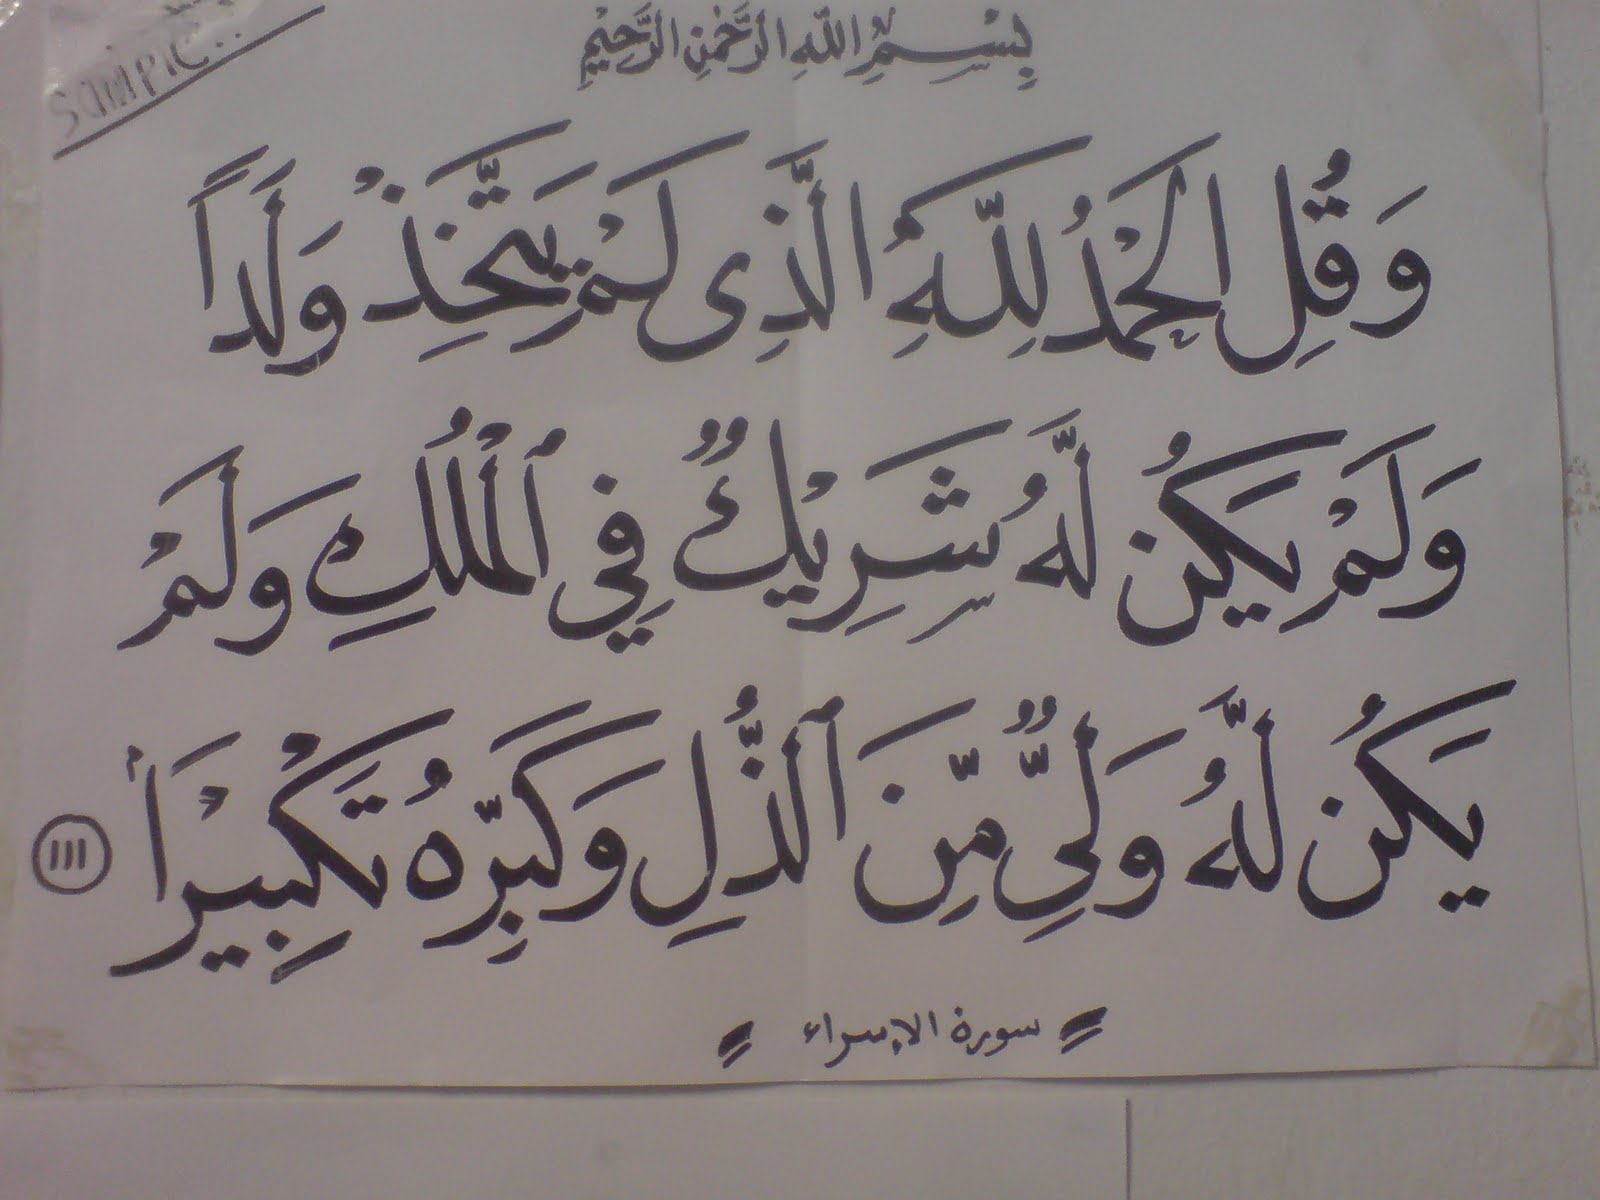 SAMPLE..
بِسْمِ اللّٰهِ الرَّحْمٰنِ الرَّحِيْمِ
وَقُلِ الْحَمْدُ لِلّٰهِ الَّذِى لَمْ يَتَّخِذْ وَلَداً
وَلَمْ يَكُن لَّهُ شَرِيْكٌ فِي ٱلْمُلْكِ وَلَمْ
يَكُنْ لَّهُ وَلِىٌّ مِّنَ ٱلذُّلِ وَكَبِّرْهُ تَكْبِيْرَاً ١١١
سورة الإسراء